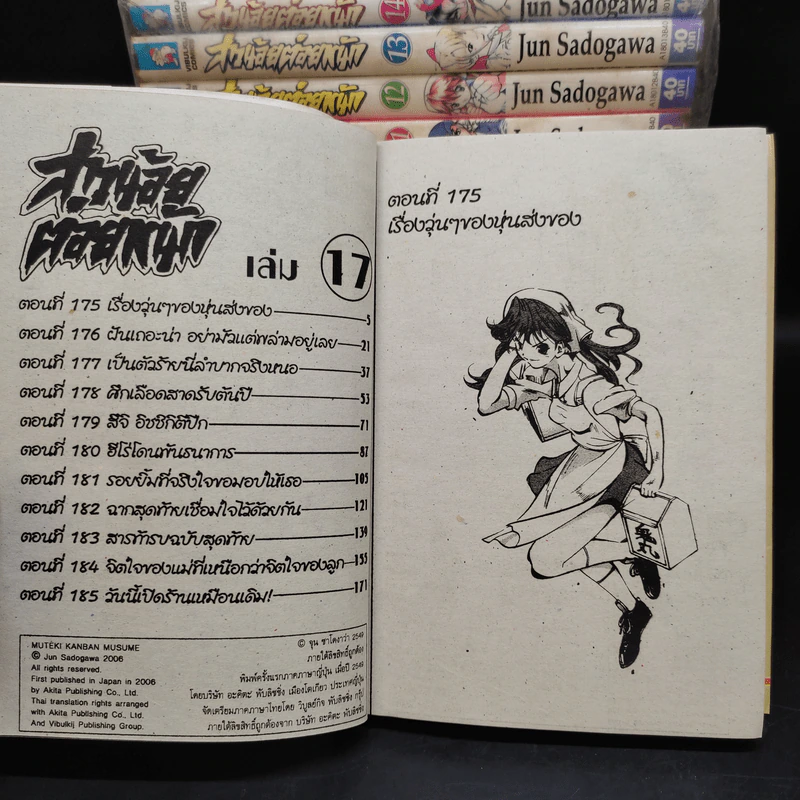 14
Jun Sadogawa
VIBULKIJ COMICS
สาวน้อยต่อยหนัก
13
Jun Sadogawa
40 บาท
สาวน้อยต่อยหนัก
12
Jun Sadogawa
40 บาท
สาวน้อย
ต่อยหนัก
เล่ม 17
ตอนที่ 175 เรื่องวุ่นๆของหุ่นส่งของ 5
ตอนที่ 176 ฝันเถอะน่า อย่ามัวแต่พล่ามอยู่เลย 21
ตอนที่ 177 เป็นตัวร้ายนี่ลำบากจริงหนอ 37
ตอนที่ 178 ศึกเลือดสาดรับตันปี 53
ตอนที่ 179 สึจิ อิชชิกิตีปึก 71
ตอนที่ 180 ฮีโร่โดนพันธนาการ 87
ตอนที่ 181 รอยยิ้มที่จริงใจขอมอบให้เธอ 105
ตอนที่ 182 ฉากสุดท้ายเชื่อมใจไว้ด้วยกัน 121
ตอนที่ 183 สารท้ารบฉบับสุดท้าย 139
ตอนที่ 184 จิตใจของแม่ที่เหนือกว่าจิตใจของลูก 155
ตอนที่ 185 วันนี้เปิดร้านเหมือนเดิม! 171
MUTEKI KANBAN MUSUME
© Jun Sadogawa 2006
All rights reserved.
First published in Japan in 2006
by Akita Publishing Co., Ltd.
Thai translation rights arranged
with Akita Publishing Co., Ltd.
And Vibulkij Publishing Group.
© จุน ซาโดงาว่า 2549
ภายใต้ลิขสิทธิ์ถูกต้อง
พิมพ์ครั้งแรกภาคภาษาญี่ปุ่น เมื่อปี 2549
โดยบริษัท อะคิตะ พับลิชชิ่ง เมืองโตเกียว ประเทศญี่ปุ่น
จัดเตรียมภาคภาษาไทยโดย วิบูลย์กิจ พับลิชชิ่ง กรุ๊ป
ภายใต้ลิขสิทธิ์ถูกต้องจาก บริษัท อะคิตะ พับลิชชิ่ง
ตอนที่ 175
เรื่องวุ่นๆของหุ่นส่งของ
鬼丸